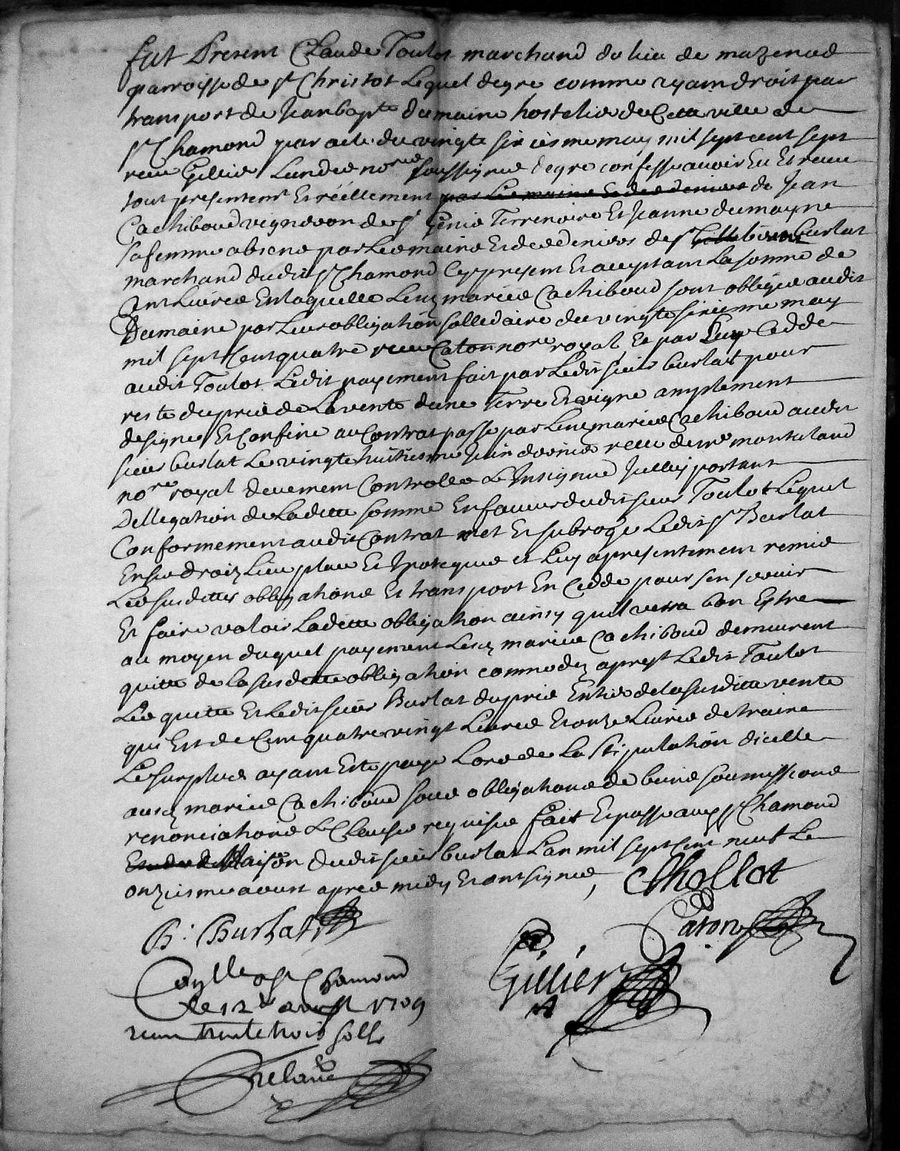 fut Present Claude Toulot marchand du lieu de mazenod
parroisse de st Christot Lequel degre comme ayant droit par
transport de Jean bapte dumaine hostelie de Cette ville de
st Chamond par acte du vingte sixiesme may mil sept cent sept
receu Gillier Lun des nores soussignes degre confesse avoir Eu et receu
tout presentemt Et réellement par Les mains et des deniers de Jean
Cachiboud vigneron de st Genis Terrenoire Et Jeanne dumayne
sa femme absens par Les mains Et des deniers de sr Burlat
marchand dudit st Chamond Cy present Et acceptant La somme de
Cent Livres En laquelle Lesd mariés Cachiboud sont obligés audit
Dumaine par Leur obligation sollidaire du vingte sixiesme may
mil sept Cent quatre receu Caton nore royal Et par Luy Cedde
audit Toulot Ledit payement fait par Ledit sieur burlat pour
reste du prix de La vente dune Terre Et vigne amplement
designe Et Confine au Contrat passe par Lesd mariés Cachiboud audit
sieur burlat Le vingte huitiesme Juin dernier receu de me montaland
nore royal deuement Controlle Et Insignué Jcelluy portant
Dellegation de Laditte somme En faveur dudit sieur Toulot Lequel
Conformement audit Contrat met Et subroge Ledit sr Burlat
En ses droits Lieu place Et Ipoteque et Luy a presentement remis
Les susdittes obligations Et transport En Cedde pour sen servir
Et faire valoir Laditte obligation ainsy quil verra bon Estre
au moyen duquel payement Lesd mariés Cachiboud demeurent
quitte de La susditte obligation comme dez apresent Ledit Toulot
Les quitte Et Ledit sieur Burlat du prix Entier de la susditte vente
qui Est de Cent quatre vingt Livres Et onze Livres detraine
Le surplus ayant Esté payé Lors de La stipulation dicelle
ausd mariés Cachiboud sous obligations de biens soumissions
renonciations Et Clauses requises fait Et passé aud st Chamond
Maison dudit sieur burlat Lan mil sept cent neuf Le
onziesme aoust apres midy Et ont signés,
CThollot
B. Burlat
Caton
Gillier
Conlle a st Chamond
le 12e aoust 1709
receu trente trois solz